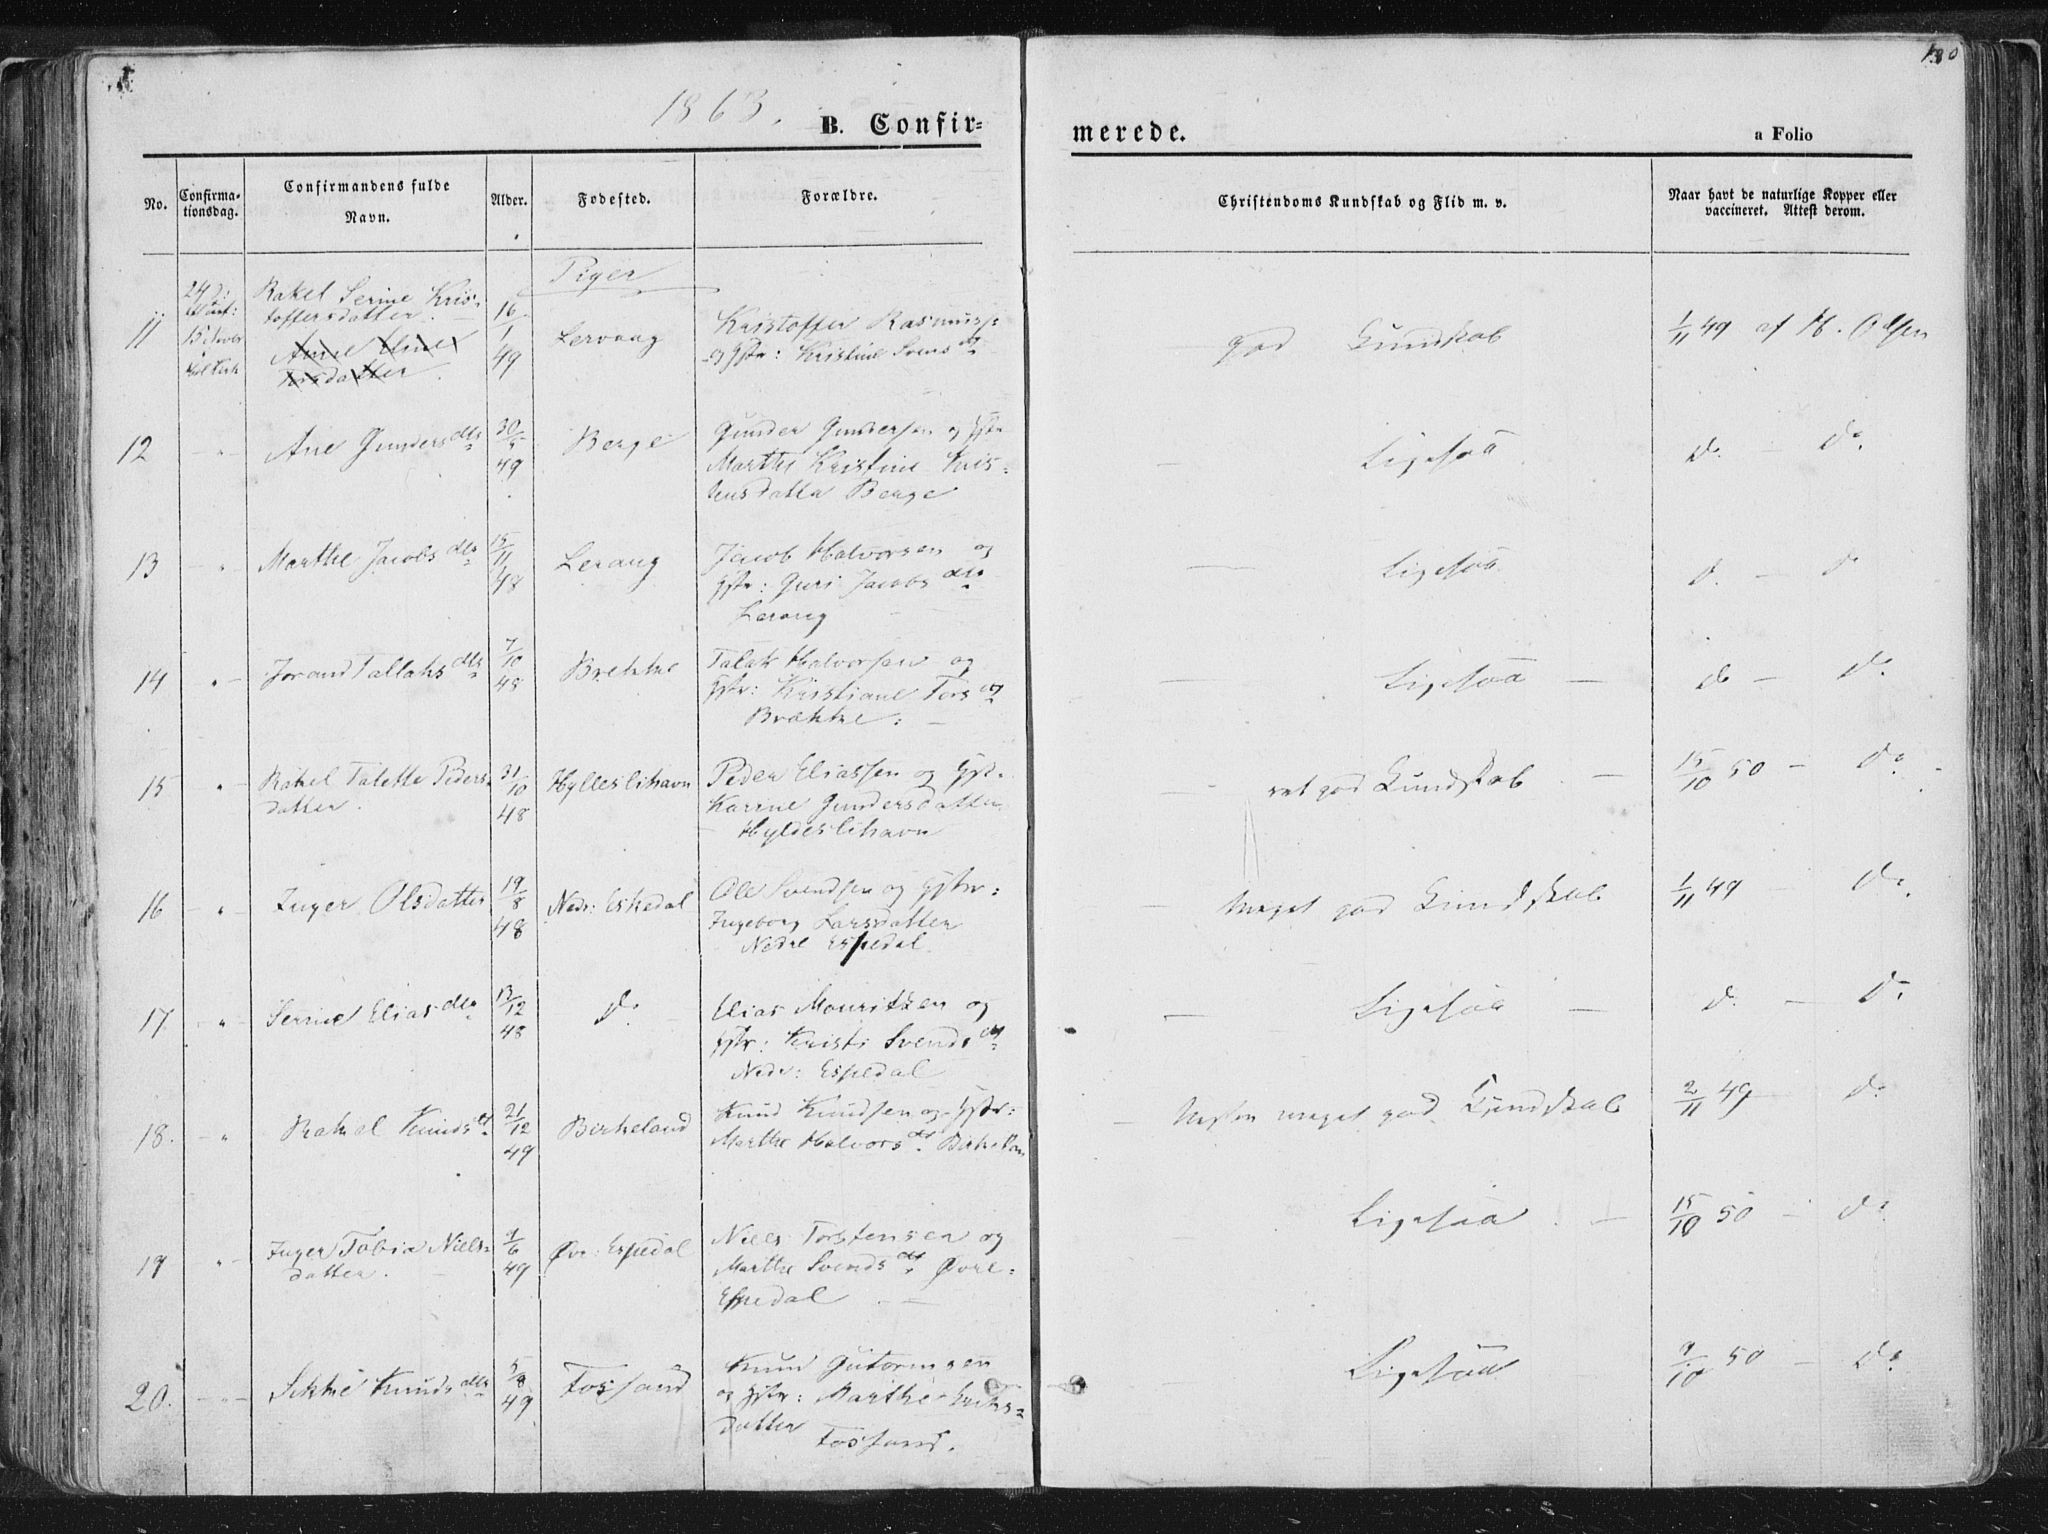 1863.
B. Confir=
merede.
a Folio
No.
Confirma-
tionsdag.
Confirmandens fulde
Navn.
Alder.
Fødested.
Forældre.
Christendoms Kundskab og Flid m. v.
Naar havt de naturlige Kopper eller
vaccineret. Attest derom.
Piger
11
Rakel Serine Kris-
toffersdatter.
16/1 49
Lervang
Kristoffer Rasmuss:
og Hstr: Kristine Svens dtr
god Kundskab
1/11 49 af H. Olsen
12 - " - Ane Gunders dtr
30/5 49
Berge
Gunder Gundersen og Hstr
Marthe Kristine Kris-
tensdatter Berge
Ligesaa
do. - do.
13 - " - Marthe Jacobs dtr
15/11 48
Lerang
Jacob Halvorsen og
Hstr: Guri Jacobs dtr
Lerang
Ligesaa
do. - do
14 " - Jorand Tallaks dtr
7/10 48
Brekke
Talak Halvorsen og
Hstr: Kristiane Tors dtr
Brække.
Ligesaa
do - do.
15 " - Rakel Talette Peders-
datter.
31/10 48
Hylleslihavn
Peder Eliassen og Hst.
Karine Gundersdatter
Hyldeslihavn
ret god Kundskab
15/10 50 - do.
16 - " - Inger Olsdatter
19/8 48
Nedr: Eskedal
Ole Svendsen og Hstr:
Ingeborg Larsdatter
Nedre Espedal
Meget god Kundskab
1/11 49 - do.
17 - " - Serine Elias dtr
13/12 48
do.
Elias Mouritzen og
Hstr: Kristi Svends dtr
Nedr: Espedal
Ligesaa
do. - do.
18. - " Rakel Knuds dt.
21/12 49
Birkeland
Knud Knudsen og Hstr:
Marthe Halvors dt. Birkelan
Næsten meget god Kundskab
2/11 49 - do
19 " - Inger Tobia Niels-
datter.
9/6 49
Øvr: Espedal
Niels Torstensen og
Marthe Svends dt Øvre-
Espedal
Ligesaa
15/10 50 - do.
20. - " - Sikke Knuds dtr
5/8 49
Fossand
Knud Gutormsen
og Hstr: Marthe Eriks-
datter
Fossand.
Ligesaa
9/10 50 - do.